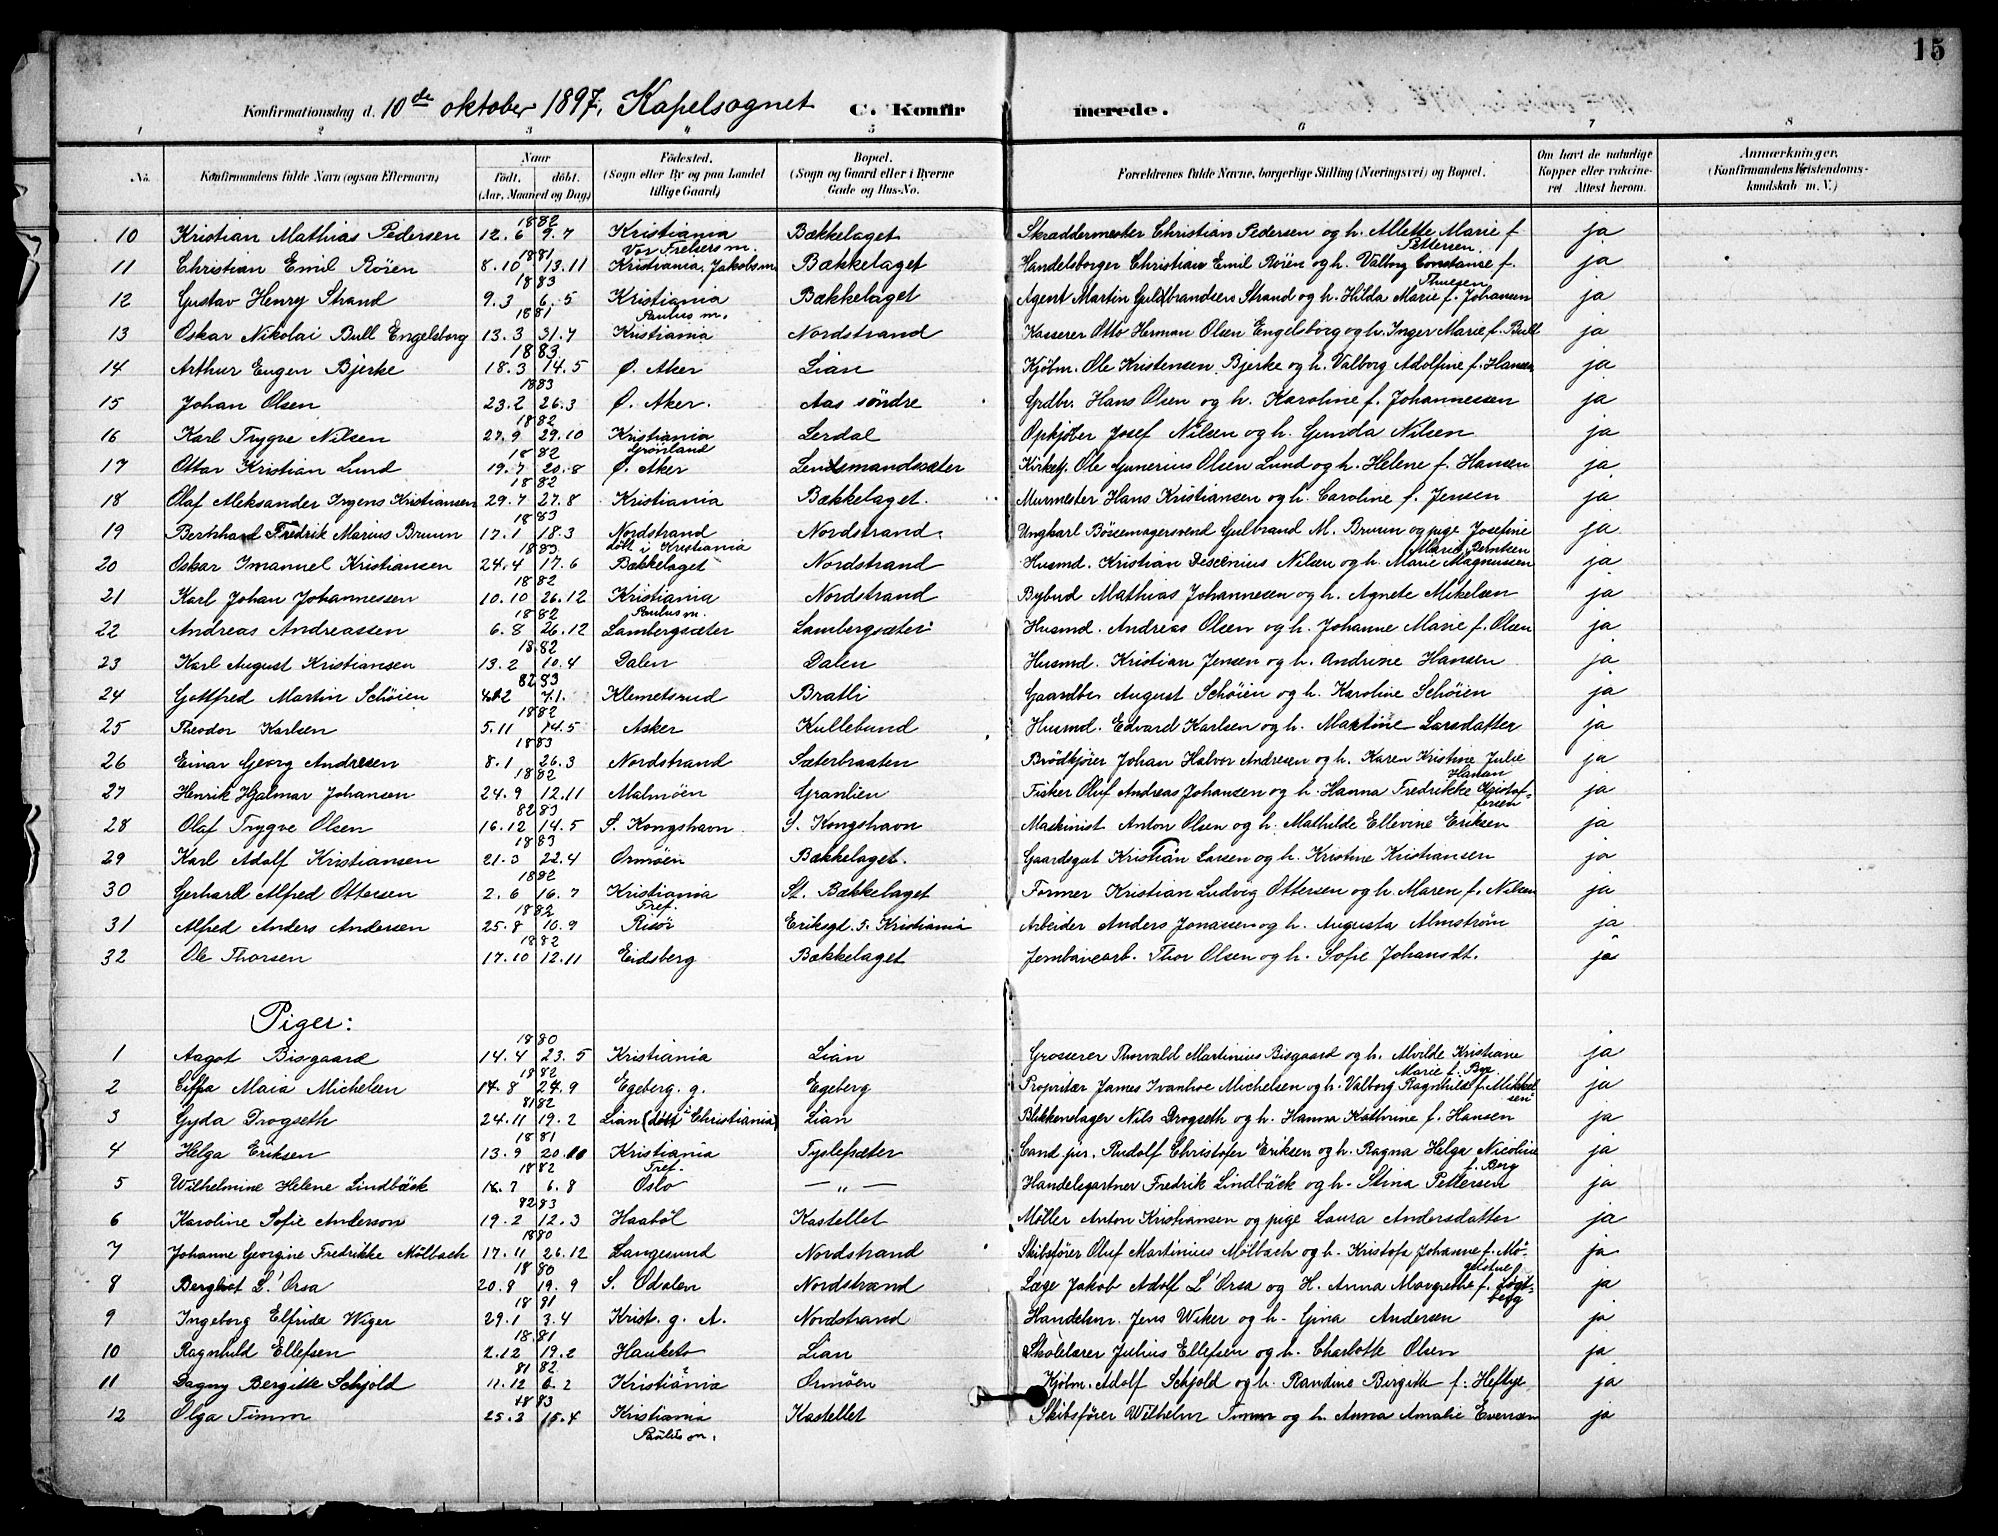 15
Konfirmationsdag d. 10de oktober 1897. Kapelsognet C. Konfirmerede.
1 2 3 4 5 6 7 8
No. Konfirmandens fulde Navn (ogsaa Efternavn) Naar født. døbt. (Aar, Maaned og Dag) Fødested. (Sogn eller By og paa Landet tillige Gaard) Bopæl. (Sogn og Gaard eller i Byerne Gade og Hus-No. Forældrenes fulde Navne, borgerlige Stilling (Næringsvei) og Bopæl. Om havt de naturlige Kopper eller vaccineret Attest herom. Anmærkninger. (Konfirmandens Kristendomskundskab m. V.)
10 Kristian Mathias Pedersen 1882 12.6 9.7 Kristiania Vor Frelsers m. Bækkelaget Skræddermester Christian Pedersen og h. Allette Marie f. Pettersen ja
11 Christian Emil Røren 1881 8.10 13.11 Kristiania, Jakobs m. Bækkelaget Handelsborger Christian Emil Røren og h. Valborg Constanse f. Thuesen ja
12 Gustav Henry Strand 1883 9.3 6.5 Kristiania Paulus m. Bækkelaget Agent Martin Guldbrandsen Strand og h. Hilda Marie f. Johansen ja
13 Oskar Nikolai Bull Engelsborg 1881 13.3 31.7 Kristiania Nordstrand Kasserer Otto Herman Olsen Engelsborg og h. Inger Marie f. Bull ja
14 Arthur Eugen Bjerke 1883 18.3 14.5 Ø. Aker Lian Kjøbm. Ole Kristensen Bjerke og h. Valborg Adolfine f. Hansen ja
15 Johan Olsen 1883 23.2 26.3 Ø. Aker. Aas søndre Grdbr. Hans Olsen og h. Karoline f. Johannessen ja
16 Karl Trygve Nilsen 1882 27.9 29.10 Kristiania Grønland Lerdal Opkjøber Josef Nilsen og h. Gunda Nilsen ja
17 Ottar Kristian Lund 1882 19.7 20.8 Ø. Aker Lensmandssæter Kirketj. Ole Gunerius Olsen Lund og h. Helene f. Hansen ja
18 Olaf Aleksander Irgens Kristiansen 1882 29.7 27.8 Kristiania Bækkelaget. Murmester Hans Kristiansen og h. Caroline f. Jensen ja
19 Bernhard Fredrik Marius Bruun 1883 17.1 18.3 Nordstrand døbt i Kristiania Nordstrand. Ungkarl Bössemagersvend Gulbrand M. Bruun og pige Josefine Marie Berntsen ja
20 Oskar Imanuel Kristiansen 1883 24.4 17.6 Bækkelaget Nordstrand Husmd. Kristian Nilsen og h. Marie Magnussen ja
21 Karl Johan Johannessen 1882 10.10 26.12 Kristiania Paulus m. Nordstrand Bybud Mathias Johannesen og h. Agnete Mikelsen ja
22 Andreas Andreassen 1882 6.8 26.12 Lambergsæter Lambergsæter Husmd. Andreas Olsen og h. Johanne Marie f. Olsen ja
23 Karl August Kristiansen 1882 13.2 10.4 Dalen Dalen Husmd. Kristian Jensen og h. Andrine Hansen ja
24 Gottfred Martin Schøien 82 83 7.1. Klemetsrud Bratli Gaardbr. August Schøien og h. Karoline Schøien ja
25 Theodor Karlsen 1882 5.11 14.5 Asker Kullebund Husmd. Edvard Karlsen og h. Martine Larsdatter ja
26 Einar Georg Andresen 1883 8.1 26.3 Nordstrand Sæterbraaten Brødkjører Johan Halvor Andresen og h. Karen Kristine Julie Hansen ja
27 Henrik Hjalmar Johansen 1882 24.9 12.11 Malmøen Granlien Fisker Oluf Andreas Johansen og h. Hanna Fredrikke Kristoffersen ja
28 Olaf Trygve Olsen 82 83 16.12 14.5 S. Kongshavn S. Kongshavn Maskinist Anton Olsen og h. Mathilde Ellevine Eriksen ja
29 Karl Adolf Kristiansen 1883 21.3 22.4 Ormøen Bækkelaget. Gaardsgut Kristian Larsen og h. Kristine Kristiansen ja
30 Gerhard Alfred Ottersen 1882 2.6 16.7 Kristiania Tref. St. Bækkelaget Former Kristian Ludvig Ottersen og h. Maren f. Nilsen ja
31 Alfred Anders Andersen 1882 25.8 10.9 Risør Eriksgt. 5. Kristiania Arbeider Anders Jonassen og h. Augusta Almstrøm ja
32 Ole Thorsen 1882 17.10 12.11 Eidsberg Bækkelaget Jernbanearb. Thor Olsen og h. Sofie Johansdt. ja
Piger:
1 Aagot Bisgaard 1880 14.4 23.5 Kristiania Lian Grosserer Thorvald Martinius Bisgaard og h. Alvilde Kristiane Marie f. Bye ja
2 Maia Michelsen 1882 17.8 24.9 Egeberg. g. Egeberg Propritær James Ivanhoe Michelsen og h. Valborg Ragnhild f. Mikkelsen ja
3 Gyda Drogseth 81 82 24.11 19.2 Lian (døbt i Christiania) Lian Blikkenslager Nils Drogseth og h. Hanna Kathrine f. Hansen ja
4 Helga Eriksen 1881 13.9 20.10 Kristiania Tref. Tyslefsæter Cand jur. Rudolf Christofer Eriksen og h. Ragna Helga Nicoline f. Berg ja
5 Wilhelmine Helene Lindbäck 1882 16.7 6.8 Oslo — „ — Handelsgartner Fredrik Lindbäck og h. Stina Pettersen ja
6 Karoline Sofie Anderson 82 83 19.2 12.3 Haabøl Kastellet Møller Anton Kristiansen og pige Laura Andersdatter ja
7 Johanne Georgine Fredrikke Mølbach 1880 17.11 26.12 Langesund Nordstrand Skibsfører Oluf Martinius Mølbach og h. Kristofa Johanne f. Møgelstue ja
8 Bergliot L'Orsa 1880 20.8 19.9 S. Odalen Nordstrand Læge Jakob Adolf L'Orsa og H. Anna Margrethe f. ja
9 Ingeborg Elfrida Wiger 1881 29.1 3.4 Krist. g. A. Nordstrand Handelsm. Jens Wiker og h. Gina Andersen ja
10 Ragnhild Ellefsen 1881 2.12 19.2 Hauketo Lian Skolelærer Julius Ellefsen og h. Charlotte Olsen ja
11 Dagny Bergitte Schjold 81 82 11.12 6.2 Kristiania Ormøen Kjøbm. Adolf Schjold og h. Randine Birgitte f. Heftye ja
12 Olga Timm 1883 25.2 15.4 Kristiania Paulus m. Kastellet Skibsfører Wilhelm Timm og h. Anna Amalie Evensen ja